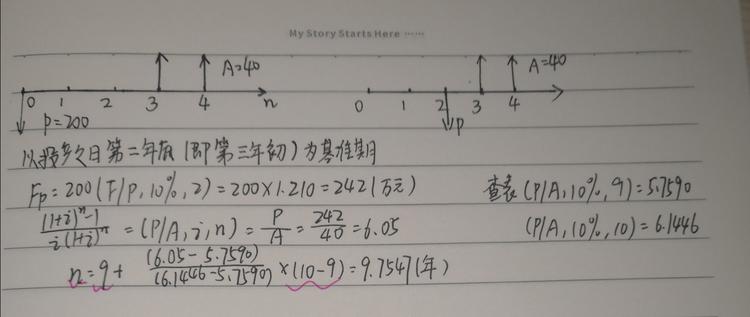 My Story Starts Here ······
A=40 A=40
0 1 2 3 4 n 0 1 2 3 4
P=200 P
以投产之日第二年末(即第三年初)为基准期
Fp=200(F/P,10%,2)=200×1.210=242(万元) 查表(P/A,10%,9)=5.7590
((1+i)^n-1)/(i(1+i)^n)=(P/A,i,n)=P/A=242/40=6.05 (P/A,10%,10)=6.1446
n=9+(6.05-5.7590)/(6.1446-5.7590)×(10-9)=9.7547(年)